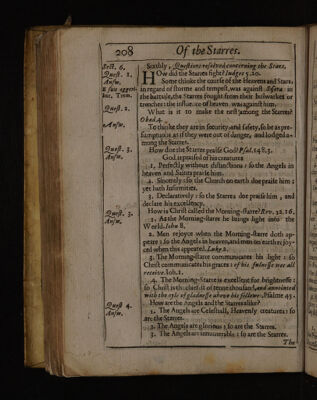 208 Of the Starres.
Sect. 6. Sixthly, Questions resolved concerning the Stars.
Quest. 1. HOw did the Starres fight? Judges 5. 20.
Answ. Some thinke the cause of the Heavens and Stars:
in regard of storme and tempest, was against Sisera in
the battaile, the Starres fought from their bulwarkes or
trenches: the influence of heaven was against him.
Quest. 2. What is it to make the nest among the Starres?
Obad. 4.
Answ. To thinke they are in security and safety, so be as pre-
sumptuous as if they were out of danger, and lodged a-
mong the Starres.
Quest. 3. How doe the Starres praise God? Psal. 148. 3.
Answ. God is praised of his creatures
1. Perfectly without distinction: so the Angels in
heaven and Saints praise him.
2. Sincerely: so the Church on earth doe praise him;
yet hath Infirmities.
3. Declaratively: so the Starres doe praise him, and
declare his excellency.
Quest. 3. How is Christ called the Morning-starre? Rev. 22. 16.
Answ. 1. As the Morning-starre he brings light into the
World. John 8.
2. Men rejoyce when the Morning-starre doth ap-
peare: so the Angels in heaven, and men on earth rejoy-
ced when this appeared. Luke 2.
3. The Morning-starre communicates his light: so
Christ communicates his graces: of his fulnesse wee all
receive. Joh. 1.
4. The Morning-Starre is excellent for brightnesse:
so Christ is the chiefest of tenne thousand, and annointed
with the oyle of gladnesse above his fellowes. Psalme 45.
Quest 4. How are the Angels and the Starres alike?
Answ. 1. The Angels are Celestiall, Heavenly creatures: so
are the Starres.
2. The Angels are glorious: so are the Starres.
3. The Angels are innumerable: so are the Starres.
The